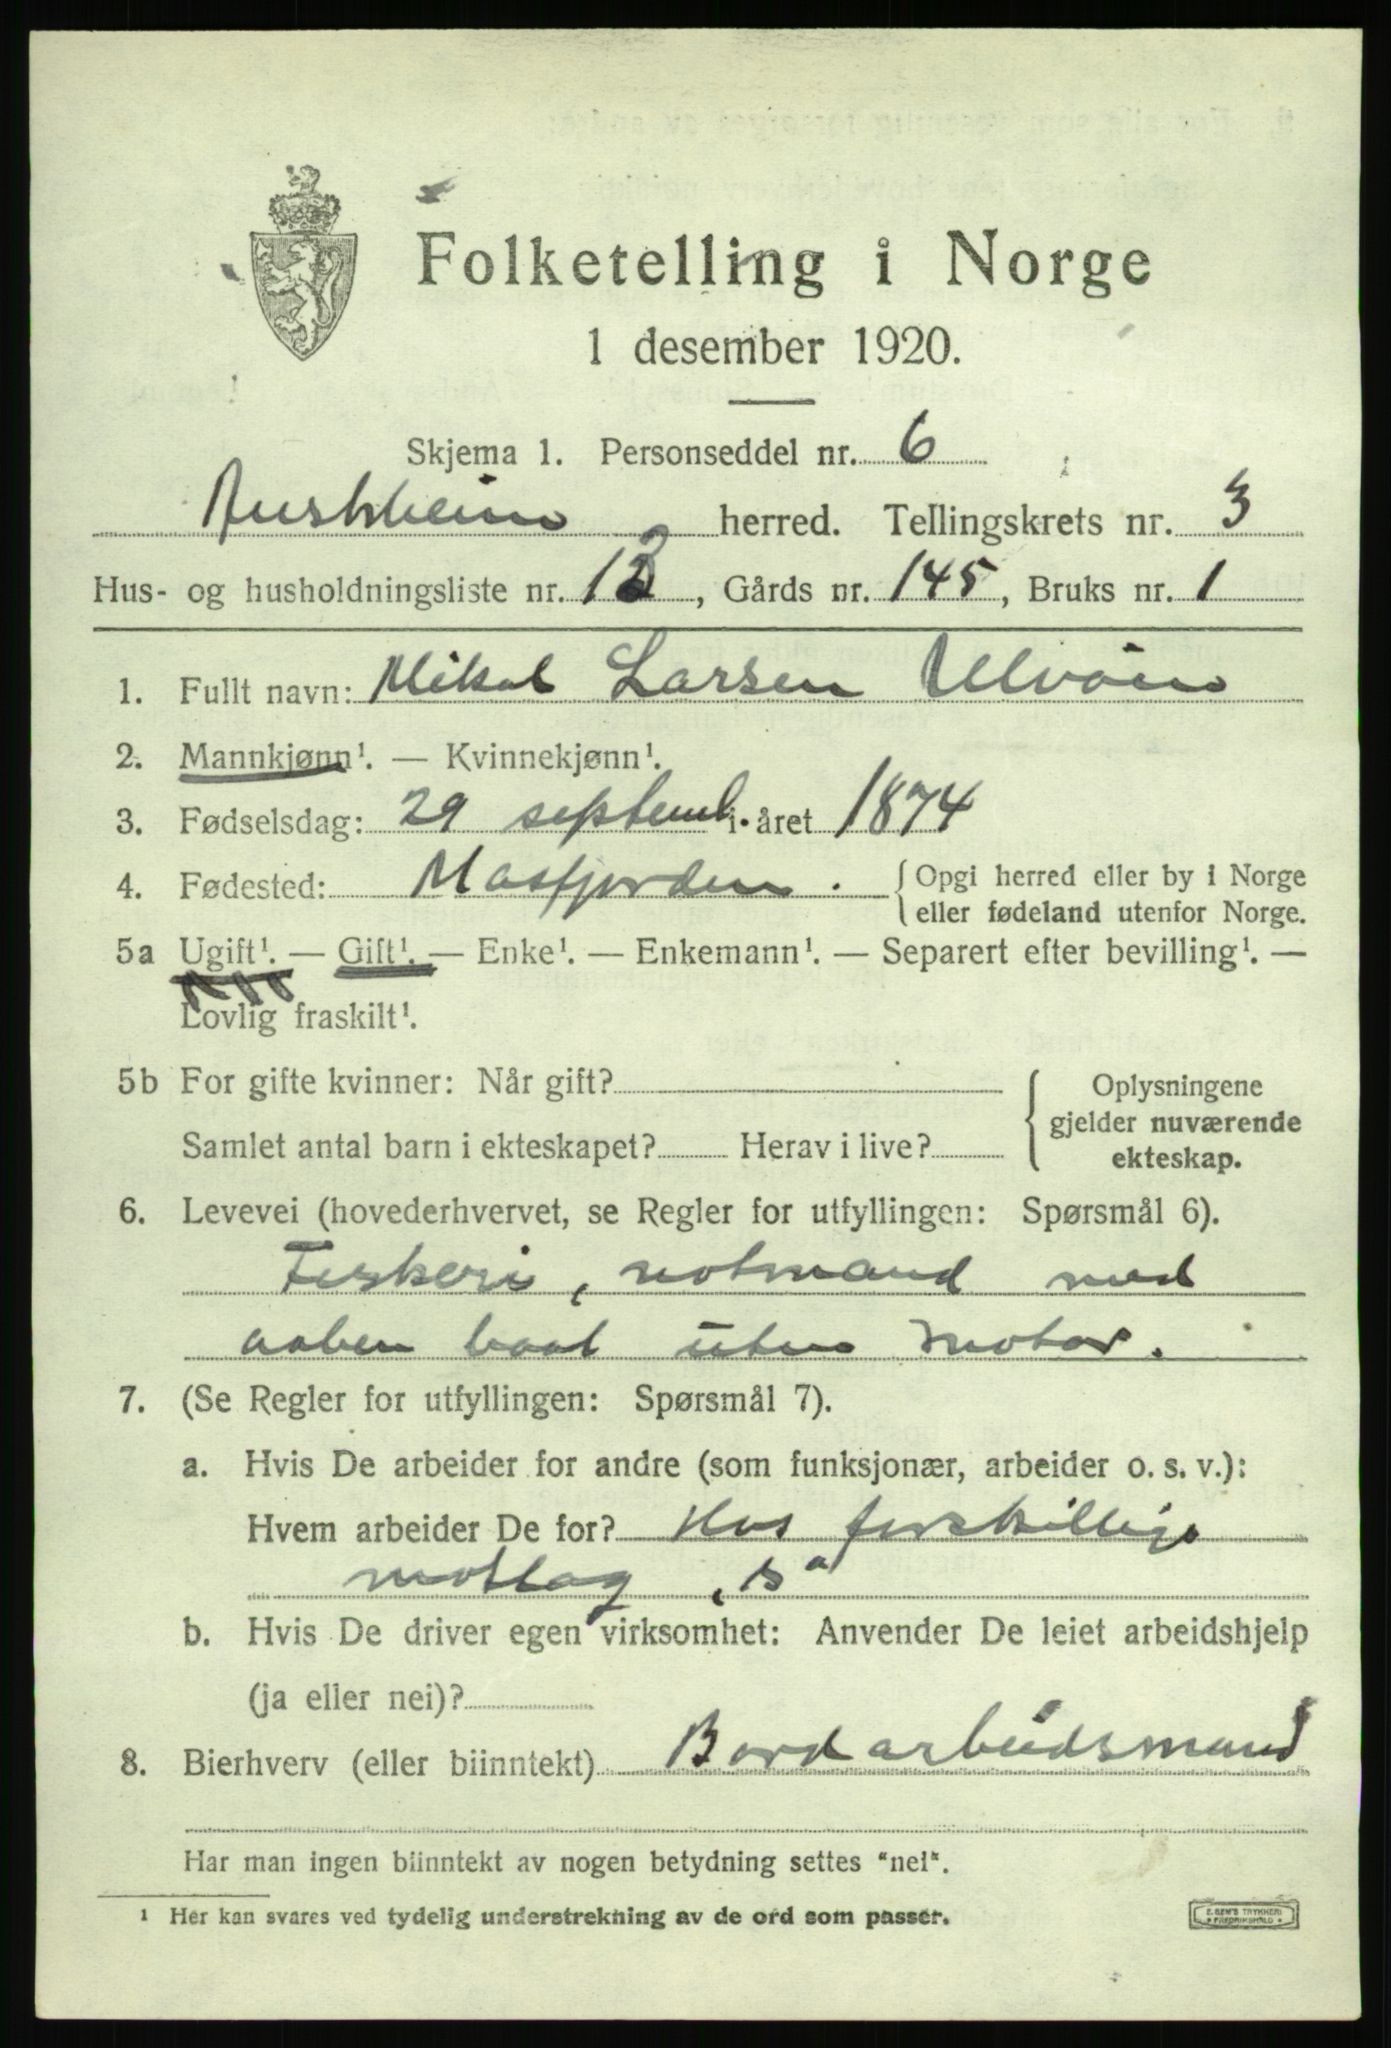 Folketelling i Norge
1 desember 1920.
Skjema 1. Personseddel nr. 6
Austrheim herred. Tellingskrets nr. 3
Hus- og husholdningsliste nr. 12, Gårds nr. 145, Bruks nr. 1
1. Fullt navn: Mikal Larsen Ulvøin
2. Mannkjønn¹. — Kvinnekjønn¹.
3. Fødselsdag: 29 septemb i året 1874
4. Fødested: Masfjorden. Opgi herred eller by i Norge
eller fødeland utenfor Norge.
5a Ugift¹. — Gift¹. — Enke¹. — Enkemann¹. — Separert efter bevilling¹. —
Lovlig fraskilt¹.
5b For gifte kvinner: Når gift? Oplysningene
gjelder nuværende
Samlet antal barn i ekteskapet? Herav i live?
ekteskap.
6. Levevei (hovederhvervet, se Regler for utfyllingen: Spørsmål 6).
Fiskeri, notmand med
aaben baat uten motor.
7. (Se Regler for utfyllingen: Spørsmål 7).
a. Hvis De arbeider for andre (som funksjonær, arbeider o. s. v.):
Hvem arbeider De for? Hos forskillige
notlag
b. Hvis De driver egen virksomhet: Anvender De leiet arbeidshjelp
(ja eller nei)?
8. Bierhverv (eller biinntekt) Bordarbeidsmand
Har man ingen biinntekt av nogen betydning settes "nei".
¹ Her kan svares ved tydelig understrekning av de ord som passer.
E. SEM'S TRYKKERI
FREDRIKSHALD